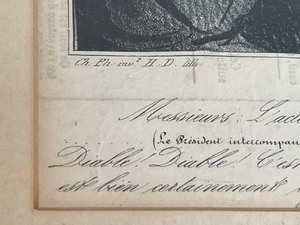 Ch. Ph. invt. H. D. lith.
Messieurs: L'ac
(Le Président interrompan
Diable! Diable! C'est
est bien certainement